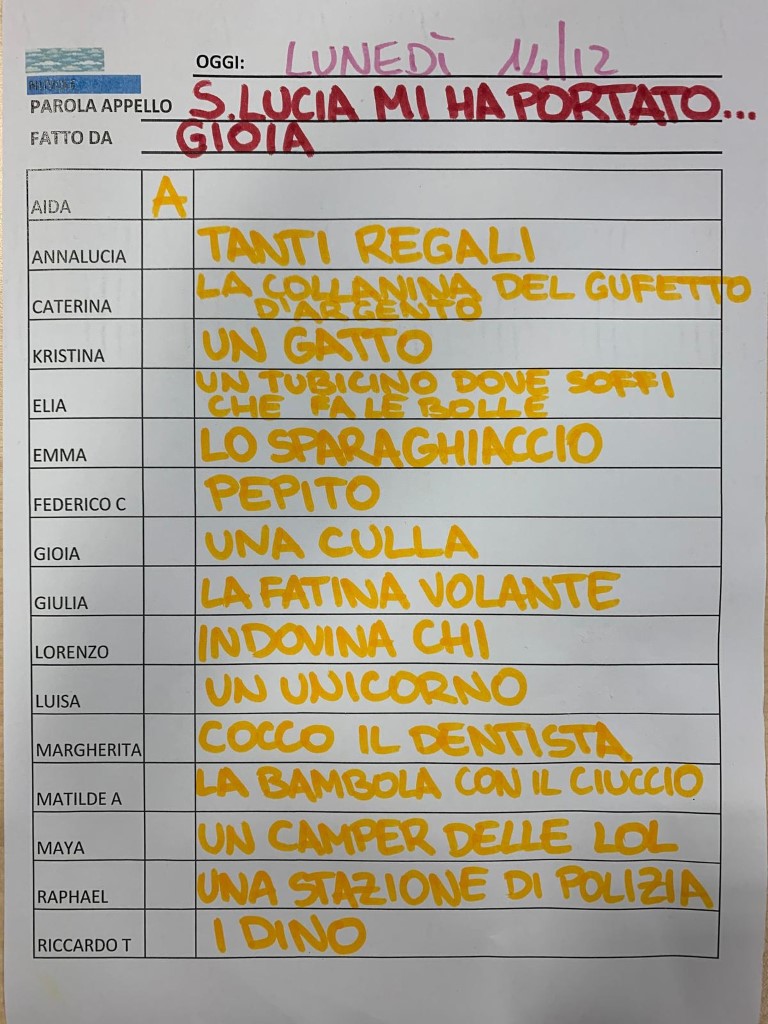 OGGI: LUNEDÌ 14/12
PAROLA APPELLO S. LUCIA MI HA PORTATO...
FATTO DA GIOIA
AIDA A
ANNALUCIA TANTI REGALI
CATERINA LA COLLANINA DEL GUFETTO
D'ARGENTO
KRISTINA UN GATTO
ELIA UN TUBICINO DOVE SOFFI
CHE FA LE BOLLE
EMMA LO SPARAGHIACCIO
FEDERICO C PEPITO
GIOIA UNA CULLA
GIULIA LA FATINA VOLANTE
LORENZO INDOVINA CHI
LUISA UN UNICORNO
MARGHERITA COCCO IL DENTISTA
MATILDE A LA BAMBOLA CON IL CIUCCIO
MAYA UN CAMPER DELLE LOL
RAPHAEL UNA STAZIONE DI POLIZIA
RICCARDO T I DINO